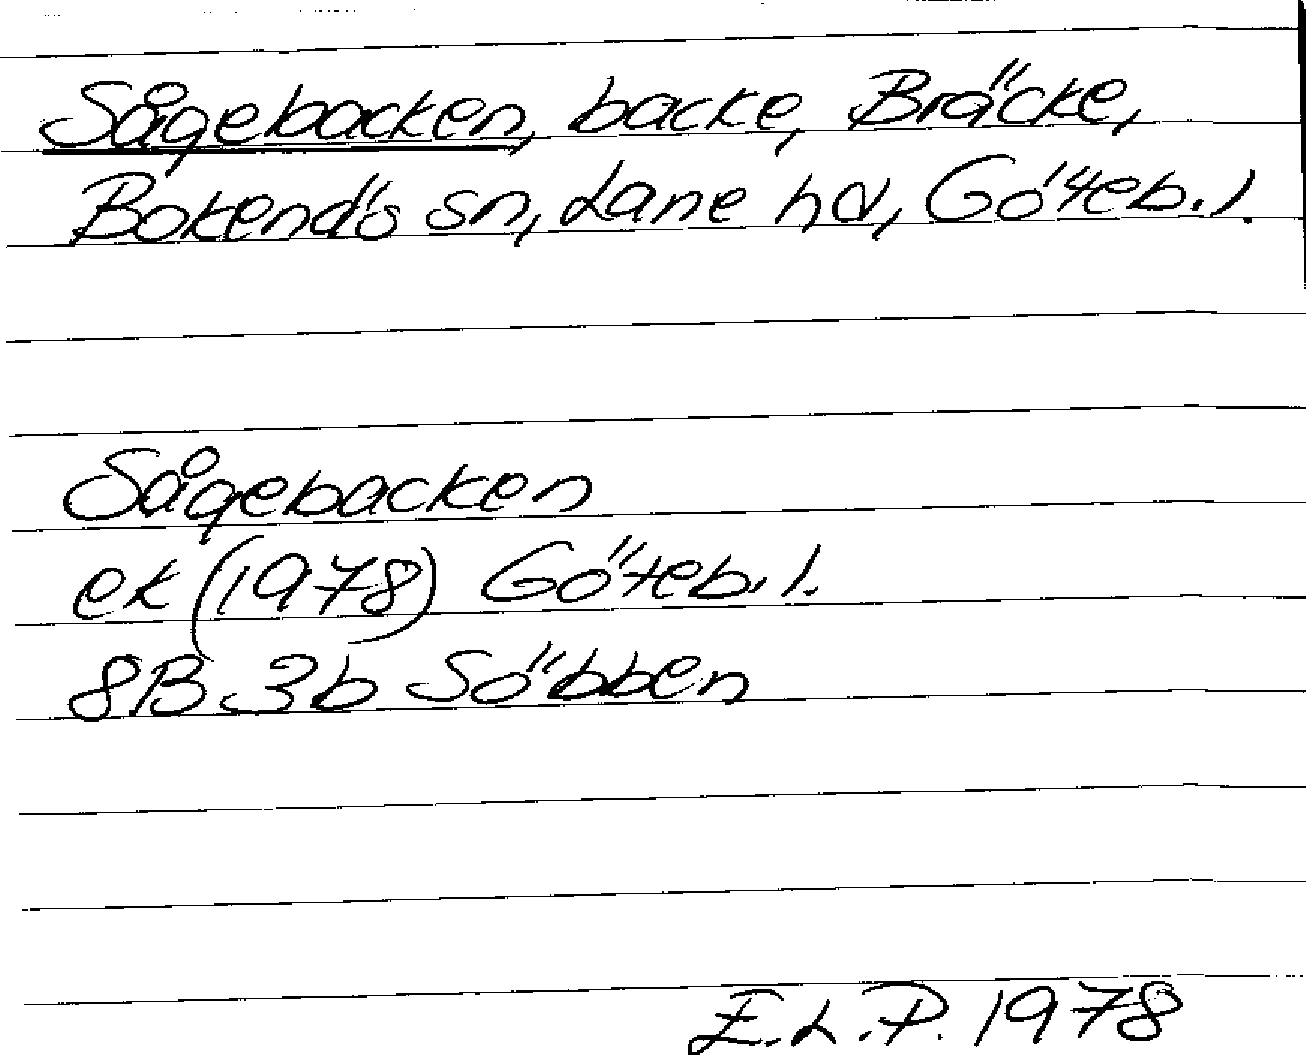 Sågebacken, backe, Bräcke,
Bokenäs sn, Lane hd, Göteb. l.
Sågebacken
ek (1978) Göteb. l.
8B 3b Söbben
E.L.P. 1978